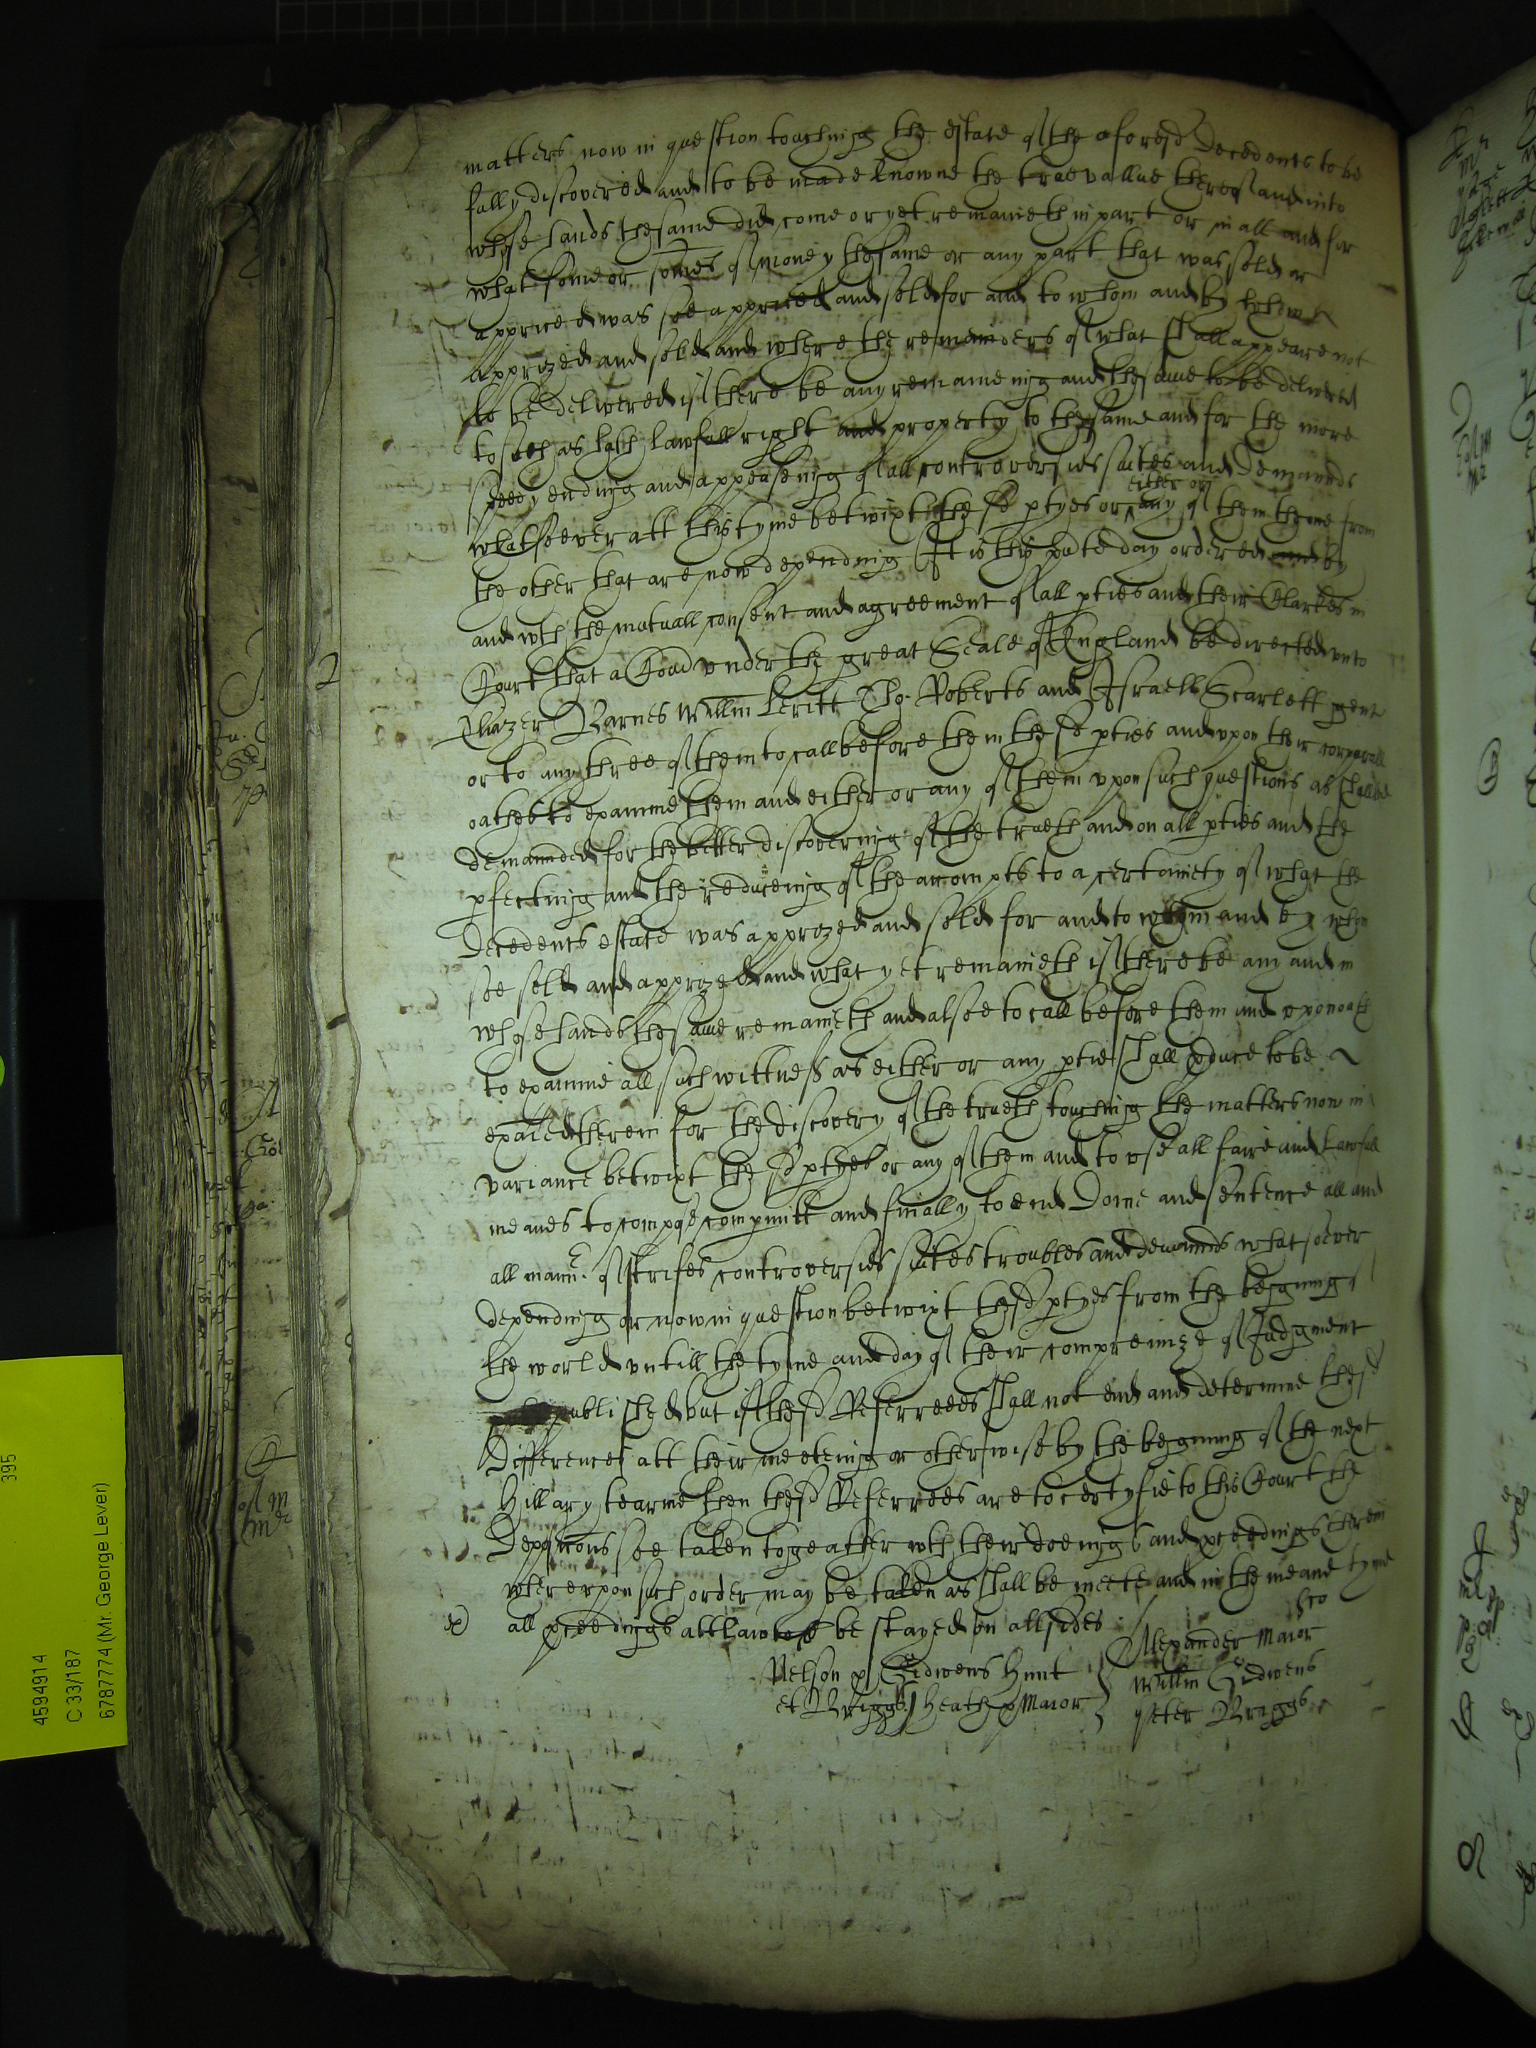 matters now in question touching the estate of the aforesd Decedents to be
fully discovered and to be made knowne the true vallue thereof and into
whose hands the same did come or yet remaineth in part or in all and for
what some or somes of money the same or any part that was sold or
apprized was soe apprized and sold for and to whom and by whom
apprized and sold and where the remainders of what shall appeare not
to be delivered if there be any remaineing and the same to be delivered
to such as hath lawfull right and property to the same and for the more
speedy ending and appeaseing of all controversies suites and Demaunds
either or
whatsoever att this tyme betwixt the sd ptyes or any of them the one from
the other that are now depending It is this psente day ordered and by
and wth the mutuall consent and agreement of all pties and their Clarkes in
Court that a Comn under the great Seale of England be directed unto
Eliazer Barnes Willm Leritt Tho: Roberts and Israell Scarlett gent
or to any three of them to call before them the sd pties and upon their corporall
oathes to examine them and either or any of them upon such questions as shall be
demaunded for the better discovering of the trueth and on all pties and the
pfecting and the reduceing of the accompts to a certainety of what the
Decedents estate was apprized and sold for and to whom and by whom
soe sold and apprized and what yet remaineth if there be any and in
whose hands the same remaineth and alsoe to call before them and upon oath
to examine all such wittness as either or any ptie shall pduce to be
exaied therein for the discovery of the trueth touching the matters now in
variance betwixt the sd ptyes or any of them and to use all faire and Lawfull
meanes to compose compmitt and finally to end Dome and sentence all and
all mannr. of strifes controversies suites troubles and demaunds whatsoever
depending or now in question betwixt the sd ptyes from the begining of
the world untill the tyme and day of their compremize of Judgment
published but if the sd Referrees shall not end and determine the sd
Differences att their meeteing or otherwise by the begining of the next
Hillary tearme then the sd Referrees are to certyfie to this Court the
Deposicons soe taken togeather wth their doeings and pceedings therein
whereupon such order may be taken as shall be meete and in the meane tyme
all pceedings att law to be stayed on all sides
Alexander Maior
Nelson p Gidwens Hunt Willm Gidwens
et Briggs Heath p Maior Peter Briggs
395
4594914
C 33/187
6787774 (Mr. George Lever)